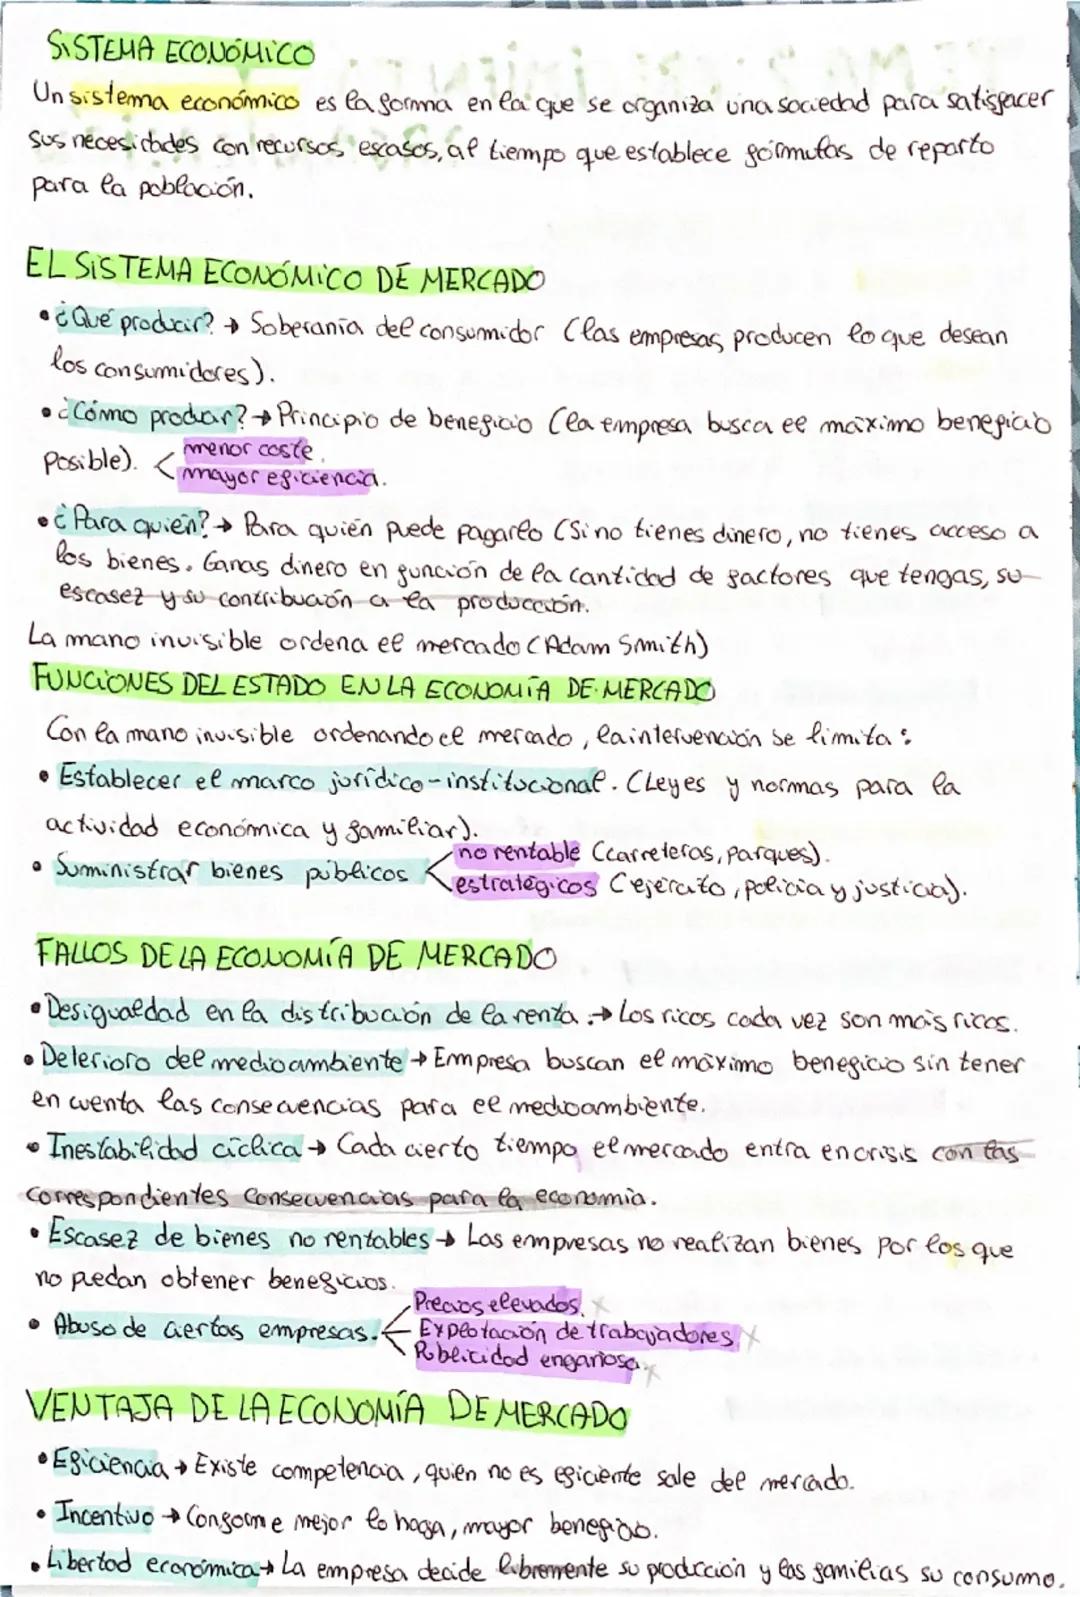 SISTEMA ECONÓMICO
Un sistema económico es la forma en la que se organiza una sociedad para satisfacer
sus necesidades con recursos escasos, al tiempo que establece fórmulas de reparto
para la población.
EL SISTEMA ECONÓMICO DE MERCADO
• ¿Qué producir? → Soberanía del consumidor (las empresas producen lo que desean
los consumidores).
• ¿Cómo producir? → Principio de beneficio (la empresa busca el máximo beneficio
posible). < menor coste.
mayor eficiencia.
• ¿Para quién? → Para quién puede pagarlo (Si no tienes dinero, no tienes acceso a
los bienes. Ganas dinero en función de la cantidad de factores que tengas, su
escasez y su contribución a la producción.
La mano invisible ordena el mercado (Adam Smith)
FUNCIONES DEL ESTADO EN LA ECONOMÍA DE MERCADO
Con la mano invisible ordenando el mercado, la intervención se limita:
• Establecer el marco jurídico-institucional. (Leyes y normas para la
actividad económica y familiar).
no rentable (carreteras, parques).
• Suministrar bienes públicos < estratégicos (ejército, policía y justicia).
FALLOS DE LA ECONOMÍA DE MERCADO
• Desigualdad en la distribución de la renta. → Los ricos cada vez son más ricos.
• Deterioro del medioambiente → Empresa buscan el máximo beneficio sin tener
en cuenta las consecuencias para el medioambiente.
• Inestabilidad cíclica → Cada cierto tiempo el mercado entra en crisis con las
correspondientes consecuencias para la economía.
• Escasez de bienes no rentables → Las empresas no realizan bienes por los que
no puedan obtener beneficios.
Precios elevados.
• Abuso de ciertas empresas. < Explotación de trabajadores
Publicidad engañosa.
VENTAJA DE LA ECONOMÍA DE MERCADO
• Eficiencia → Existe competencia, quién no es eficiente sale del mercado.
• Incentivo → Conforme mejor lo haga, mayor beneficio.
• Libertad económica → La empresa decide libremente su producción y las familias su consumo.